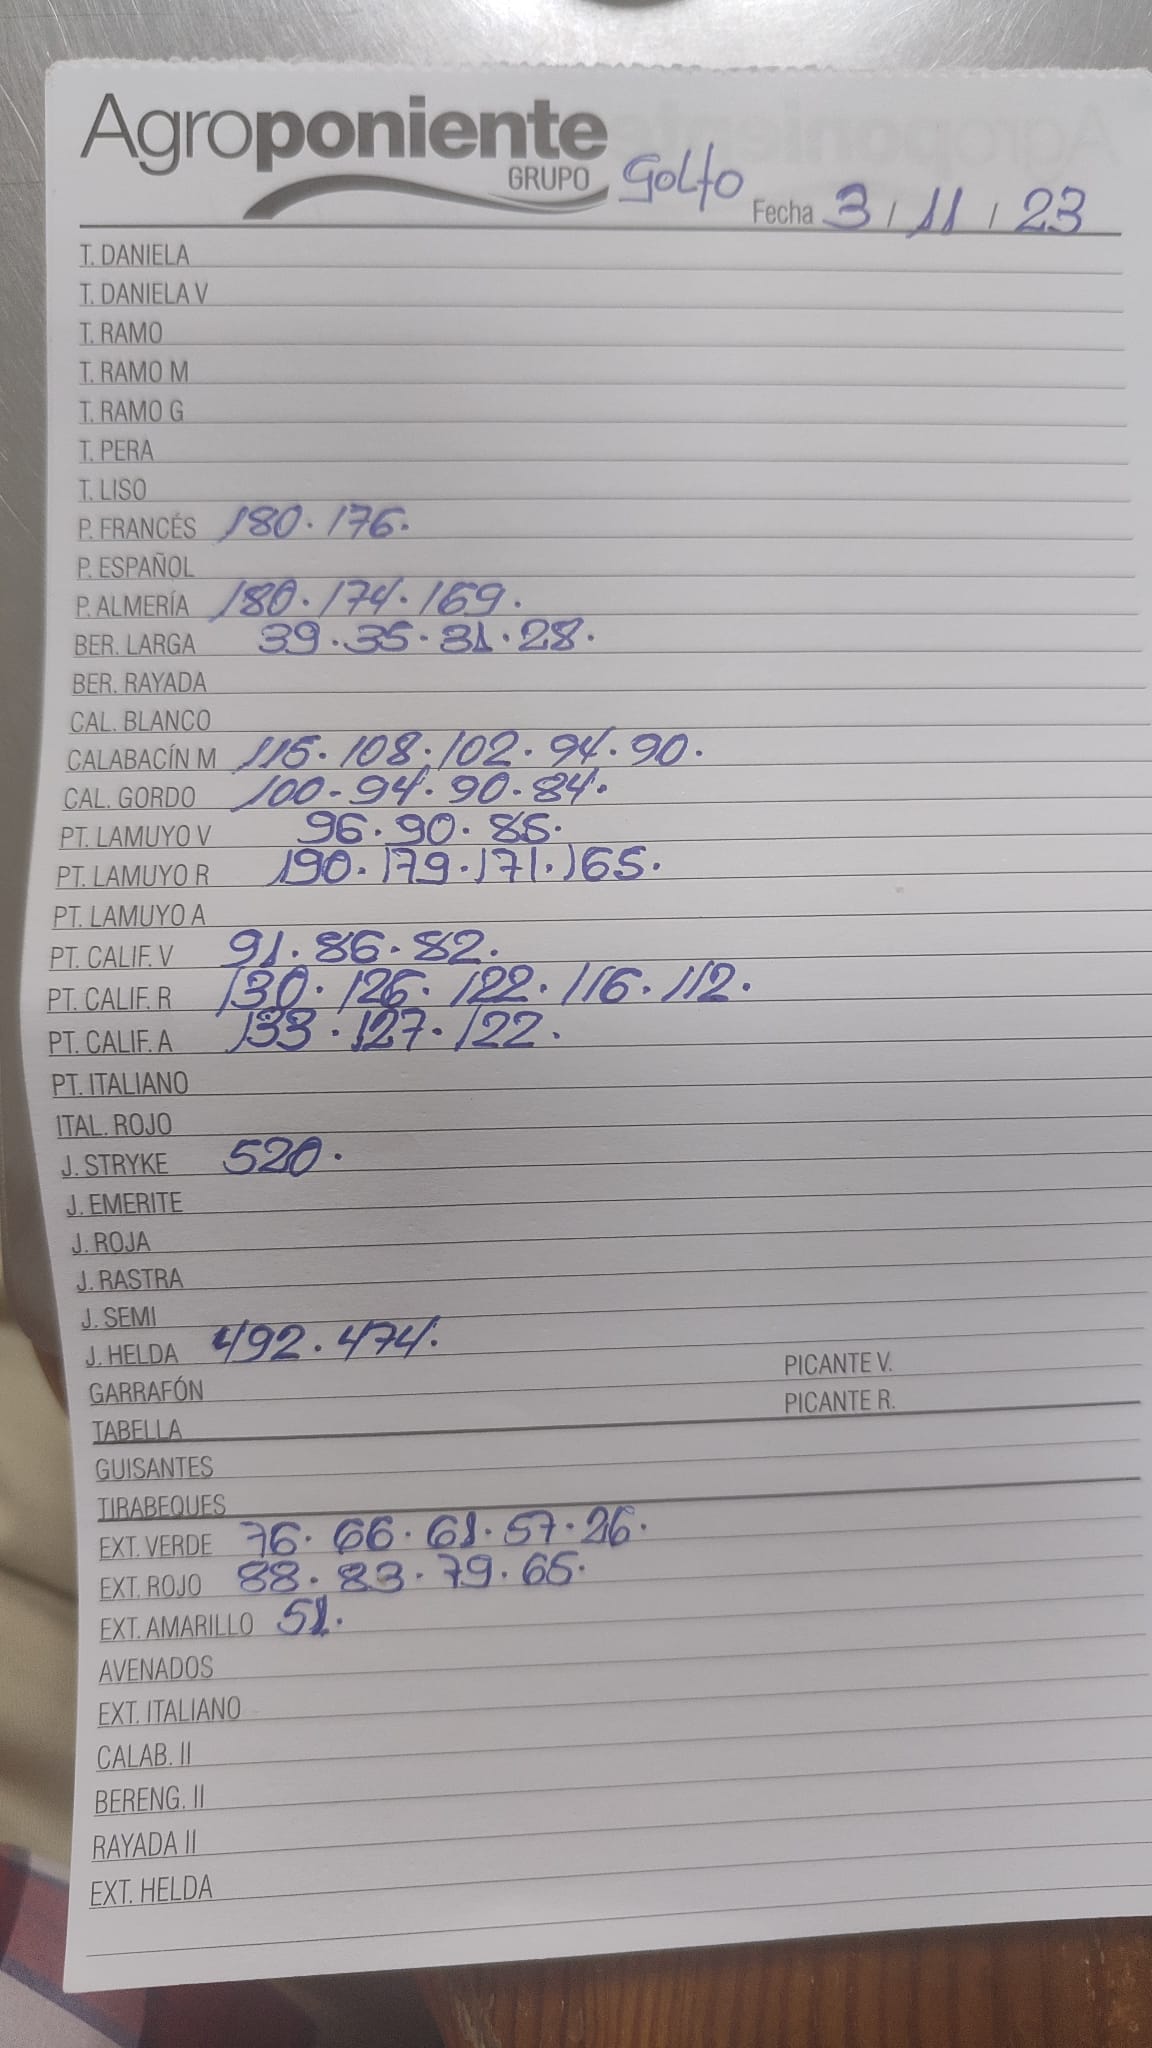 Agroponiente
GRUPO Golfo Fecha 3 / 11 / 23
T. DANIELA
T. DANIELA V
T. RAMO
T. RAMO M
T. RAMO G
T. PERA
T. LISO
P. FRANCÉS 180. 176.
P. ESPAÑOL
P. ALMERÍA 180. 174. 169.
BER. LARGA 39. 35. 31. 28.
BER. RAYADA
CAL. BLANCO
CALABACÍN M 115. 108. 102. 94. 90.
CAL. GORDO 100- 94. 90. 84.
PT. LAMUYO V 96. 90. 85.
PT. LAMUYO R 190. 179. 171. 165.
PT. LAMUYO A
PT. CALIF. V 91. 86. 82.
PT. CALIF. R 130. 126. 122. 116. 112.
PT. CALIF. A 133. 127. 122.
PT. ITALIANO
ITAL. ROJO
J. STRYKE 520.
J. EMERITE
J. ROJA
J. RASTRA
J. SEMI
J. HELDA 492. 474.
GARRAFÓN PICANTE V.
TABELLA PICANTE R.
GUISANTES
TIRABEQUES
EXT. VERDE 76. 66. 61. 57. 26.
EXT. ROJO 88. 83. 79. 65.
EXT. AMARILLO 51.
AVENADOS
EXT. ITALIANO
CALAB. II
BERENG. II
RAYADA II
EXT. HELDA